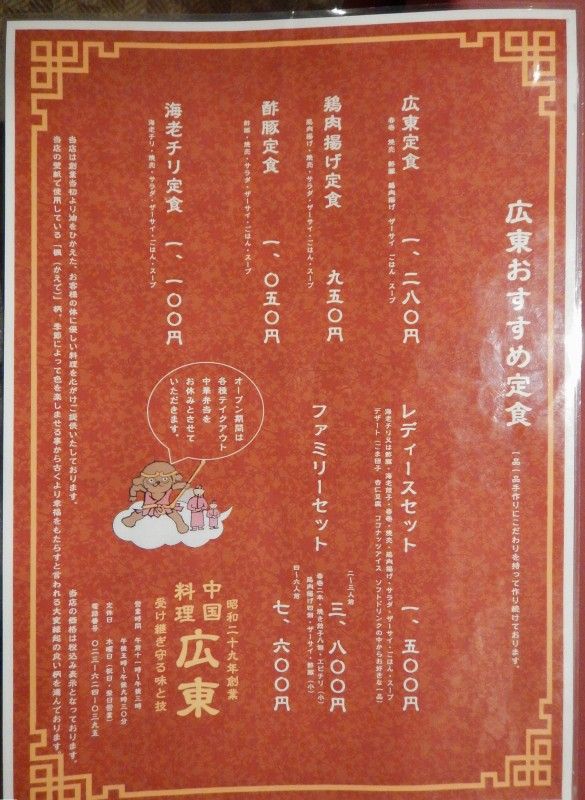 広東おすすめ定食
一品一品手作りにこだわりを持って作り続けております。
広東定食
春巻 焼売 酢豚 鶏肉揚げ ザーサイ ごはん スープ
一、二八〇円
鶏肉揚げ定食
鶏肉揚げ・焼売・サラダ・ザーサイ・ごはん・スープ
九五〇円
酢豚定食
酢豚・焼売・サラダ・ザーサイ・ごはん・スープ
一、〇五〇円
海老チリ定食
海老チリ・焼売・サラダ・ザーサイ・ごはん・スープ
一、一〇〇円
レディースセット
海老チリ又は酢豚・海老餃子・春巻・焼売・鶏肉揚げ・サラダ・ザーサイ・ごはん・スープ
デザート(ごま団子 杏仁豆腐 ココナッツアイス ソフトドリンクの中からお好きな一品)
一、五〇〇円
ファミリーセット
二〜三人前
三、八〇〇円
春巻二本・焼き餃子八個・エビチリ(小)
鶏肉揚げ四個・ザーサイ・酢豚(小)
四〜六人前
七、六〇〇円
オープン期間は
各種テイクアウト
中華弁当を
お休みとさせて
いただきます。
昭和二十九年創業
受け継ぎ守る味と技
中国料理
広東
営業時間 午前十一時〜午後二時
午後五時〜午後九時三〇分
定休日 木曜日(祝日・祭日営業)
電話番号 〇二三-六二四-〇三九五
当店は創業当初より油をひかえた、お客様の体に優しい料理を心がけご提供いたしております。
当店の価格は税込み表示となっております。
当店の壁紙で使用している「楓(かえで)」柄、季節によって色を楽しませる事から古くより幸福をもたらすと言われる大変縁起の良い柄を選んでおります。